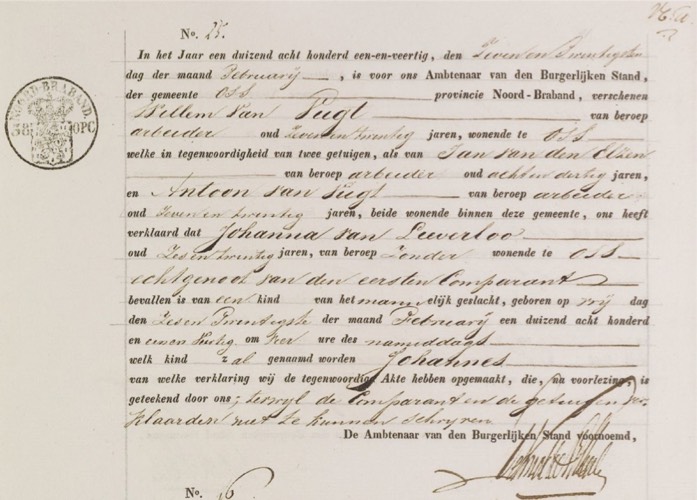 No. 25.
In het Jaar een duizend acht honderd een-en-veertig, den Zeven en Twintigsten
dag der maand Februarij, is voor ons Ambtenaar van den Burgerlijken Stand,
der gemeente Oss provincie Noord-Braband, verschenen
Willem van Vugt van beroep
arbeider oud Zeven en twintig jaren, wonende te Oss
welke in tegenwoordigheid van twee getuigen, als van Jan van den Elzen
van beroep arbeider oud acht en dertig jaren,
en Antoon van Vugt van beroep arbeider
oud Zeven en twintig jaren, beide wonende binnen deze gemeente, ons heeft
verklaard dat Johanna van Leeverloo
oud Zes en twintig jaren, van beroep Zonder wonende te Oss
echtgenoot van den eersten Comparant
bevallen is van een kind van het mannelijk geslacht, geboren op vrij dag
den Zes en Twintigste der maand Februarij een duizend acht honderd
en een en veertig om vier ure des namiddags
welk kind zal genaamd worden Johannes
van welke verklaring wij de tegenwoordige Akte hebben opgemaakt, die, na voorlezing, is
geteekend door ons; terwyl de Comparant en de getuigen ver-
klaarden niet te kunnen schryven
De Ambtenaar van den Burgerlijken Stand voornoemd,
No. 26
NOORD-BRABAND.
OPC